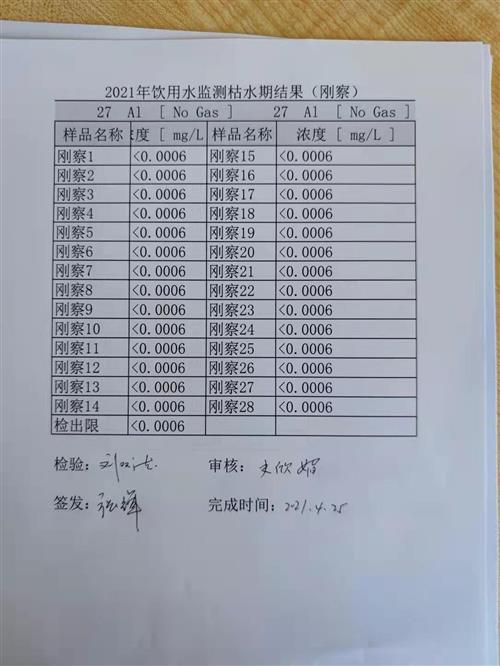 2021年饮用水监测枯水期结果（刚察）
27 Al [ No Gas ] 27 Al [ No Gas ]
样品名称 浓度 [ mg/L 样品名称 浓度 [ mg/L ]
刚察1 <0.0006 刚察15 <0.0006
刚察2 <0.0006 刚察16 <0.0006
刚察3 <0.0006 刚察17 <0.0006
刚察4 <0.0006 刚察18 <0.0006
刚察5 <0.0006 刚察19 <0.0006
刚察6 <0.0006 刚察20 <0.0006
刚察7 <0.0006 刚察21 <0.0006
刚察8 <0.0006 刚察22 <0.0006
刚察9 <0.0006 刚察23 <0.0006
刚察10 <0.0006 刚察24 <0.0006
刚察11 <0.0006 刚察25 <0.0006
刚察12 <0.0006 刚察26 <0.0006
刚察13 <0.0006 刚察27 <0.0006
刚察14 <0.0006 刚察28 <0.0006
检出限 <0.0006
检验： 审核：
签发： 完成时间：2021.4.25